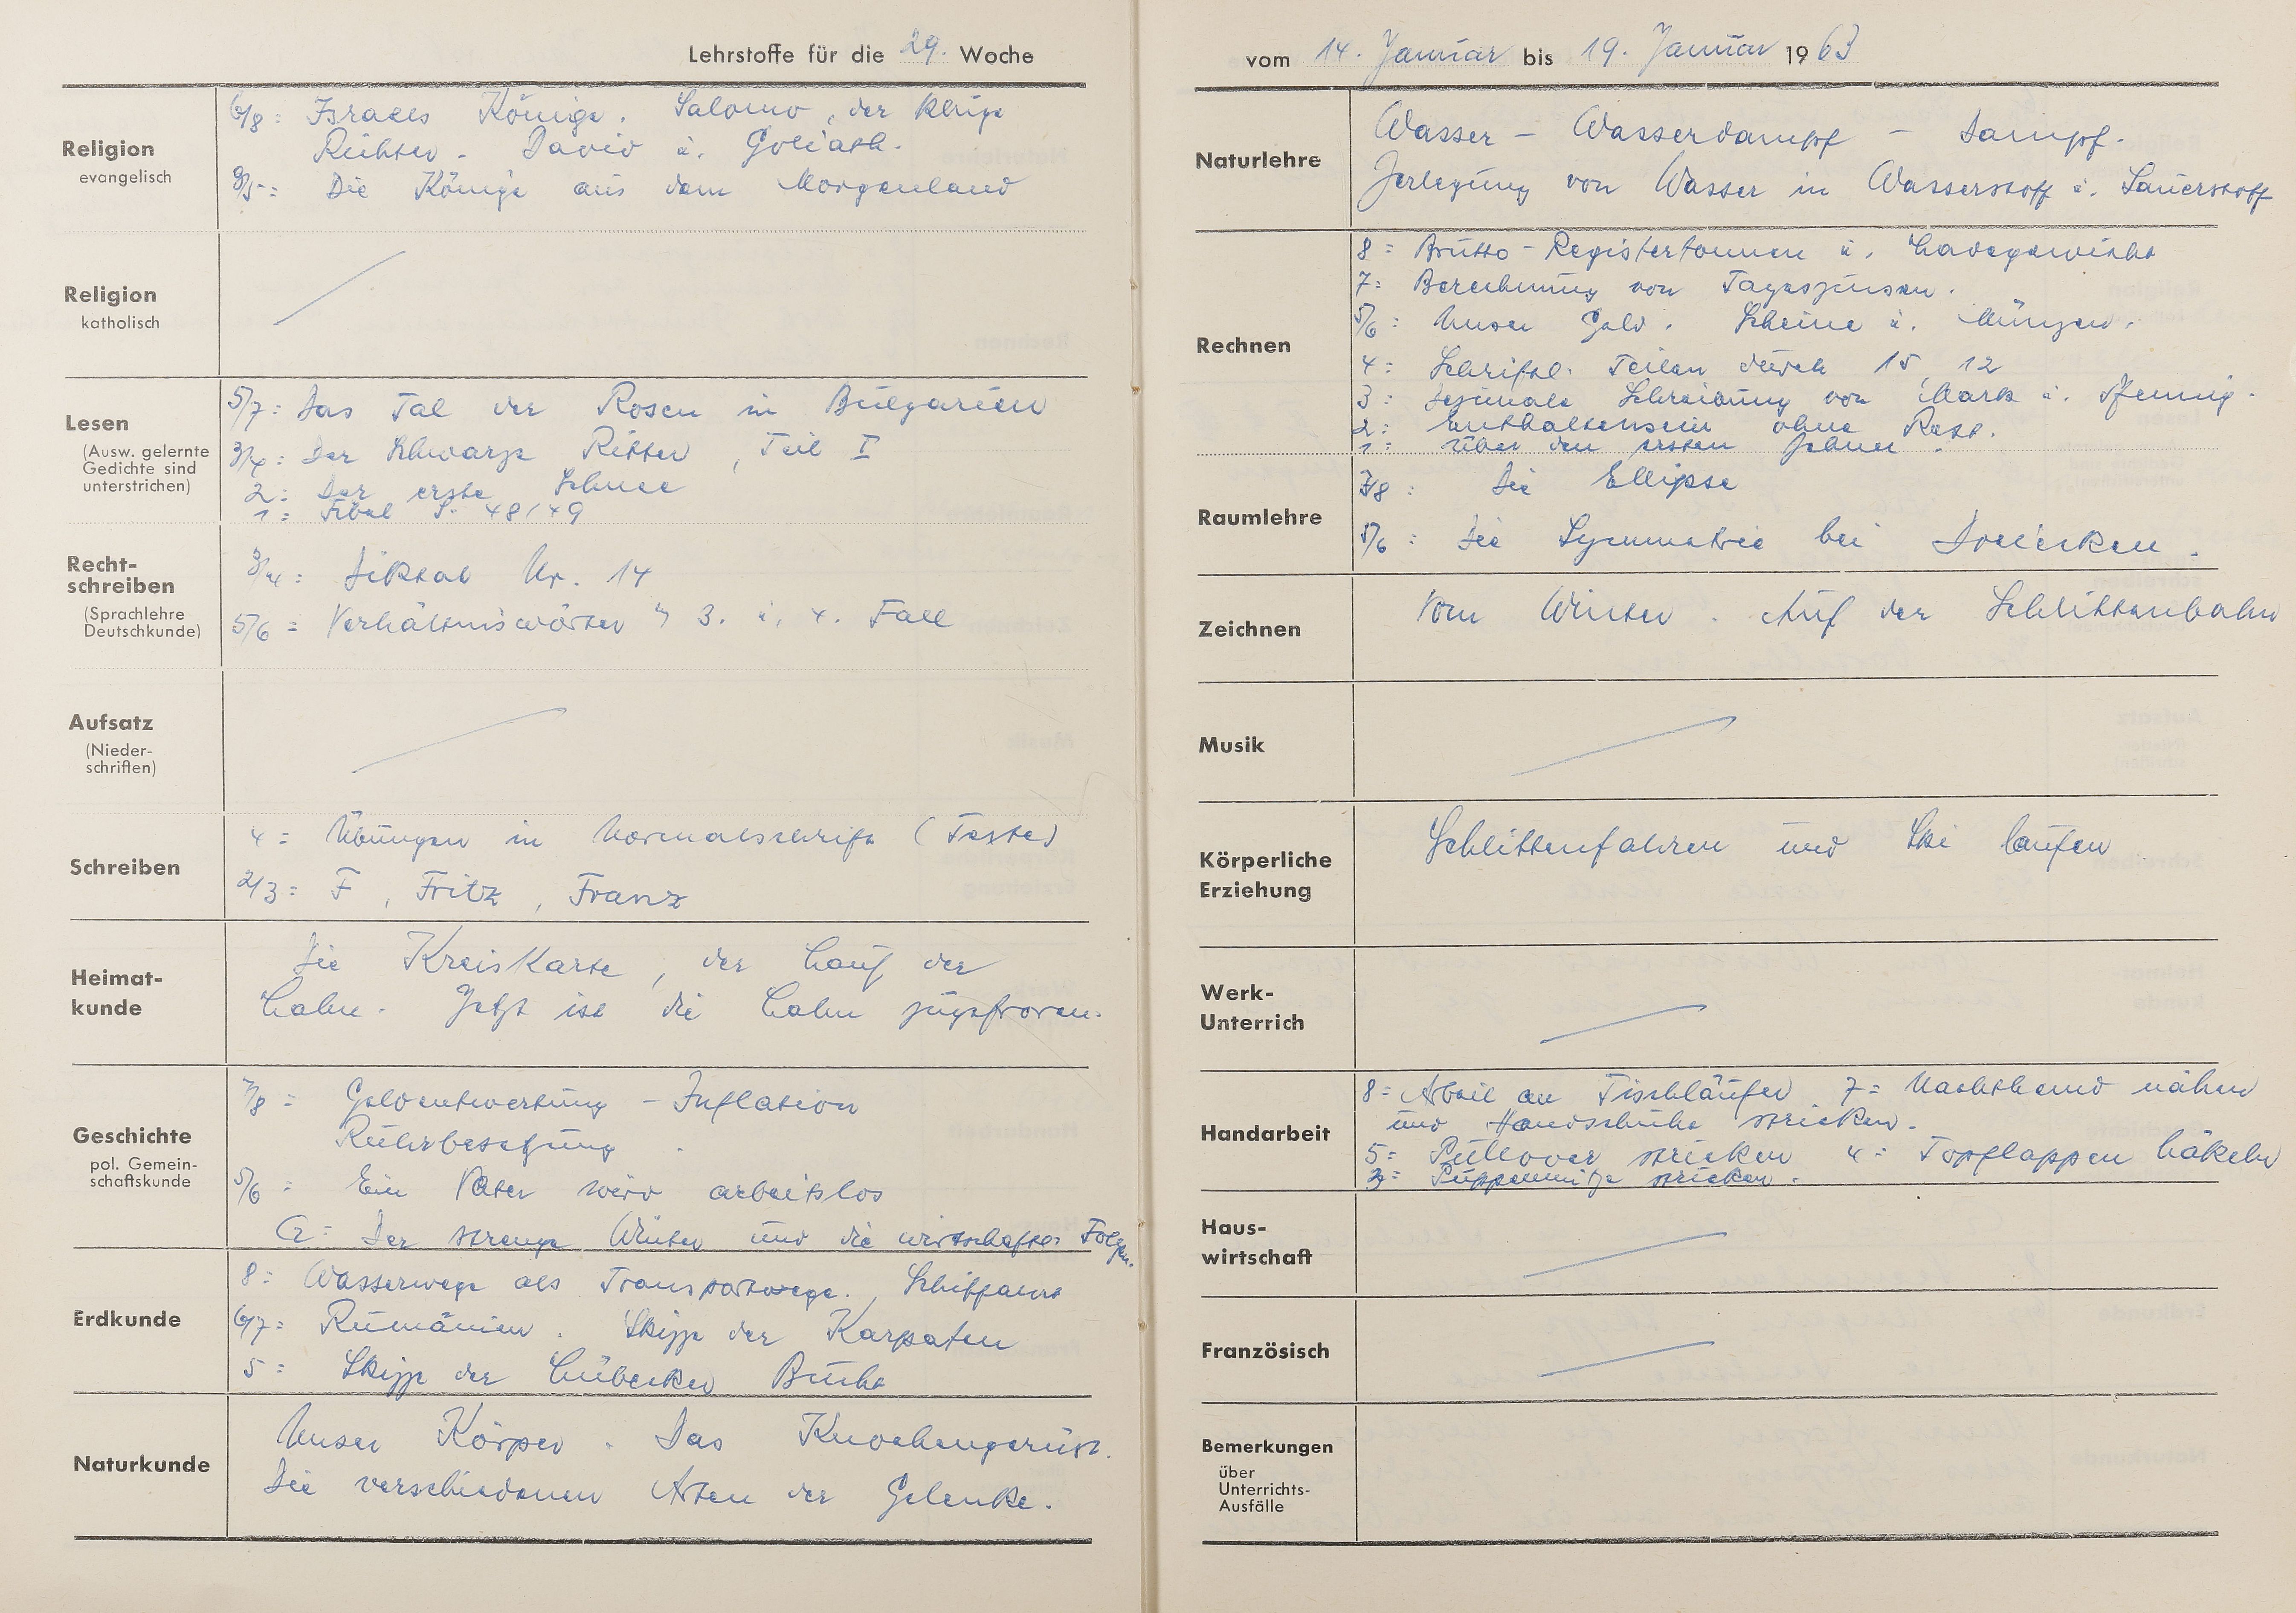 Lehrstoffe für die 29. Woche
Religion
evangelisch
6/8: Israels Könige. Salomo, der kluge
Richter. David u. Goliath.
3/5: Die Könige aus dem Morgenland
Religion
katholisch
Lesen
(Ausw. gelernte
Gedichte sind
unterstrichen)
5/7: Das Tal der Rosen in Bulgarien
3/4: Der schwarze Ritter, Teil I
2: Der erste Schnee
1: Fibel S. 48/49
Recht-
schreiben
(Sprachlehre
Deutschkunde)
3/4: Diktat Nr. 14
5/6: Verhältniswörter 3. u. 4. Fall
Aufsatz
(Nieder-
schriften)
Schreiben
4: Übungen in Normalschrift (Texte)
2/3: F, Fritz, Franz
Heimat-
kunde
Die Kreiskarte, der Lauf der
Lahn. Jetzt ist die Lahn zugefroren.
Geschichte
pol. Gemein-
schaftskunde
7/8: Geldentwertung - Inflation
Ruhrbesetzung.
5/6: Ein Vater wird arbeitslos
G: Der strenge Winter und die wirtschaftl. Folgen.
Erdkunde
8: Wasserwege als Transportwege. Schiffahrt
6/7: Rumänien. Skizze der Karpaten
5: Skizze der Lübecker Bucht
Naturkunde
Unser Körper. Das Knochengerüst.
Die verschiedenen Arten der Gelenke.
vom 14. Januar bis 19. Januar 1963
Naturlehre
Wasser - Wasserdampf - Dampf.
Zerlegung von Wasser in Wasserstoff u. Sauerstoff
Rechnen
8: Brutto-Registertonnen u. Ladegewicht
7: Berechnung von Tageszinsen.
5/6: Unser Geld. Scheine u. Münzen.
4: Schriftl. Teilen durch 15, 12
3: Dezimale Schreibung von Mark u. Pfennig.
2: Enthaltensein ohne Rest.
1: Über den ersten Zehner.
Raumlehre
7/8: Die Ellipse
5/6: Die Symmetrie bei Dreiecken.
Zeichnen
Vom Winter. Auf der Schlittenbahn
Musik
Körperliche
Erziehung
Schlittenfahren und Ski laufen
Werk-
Unterrich
Handarbeit
8: Arbeit an Tischläufer 7: Nachthemd nähen
und Handschuhe stricken.
5: Pullover stricken 4: Topflappen häkeln
3: Puppenmütze stricken.
Haus-
wirtschaft
Französisch
Bemerkungen
über
Unterrichts-
Ausfälle